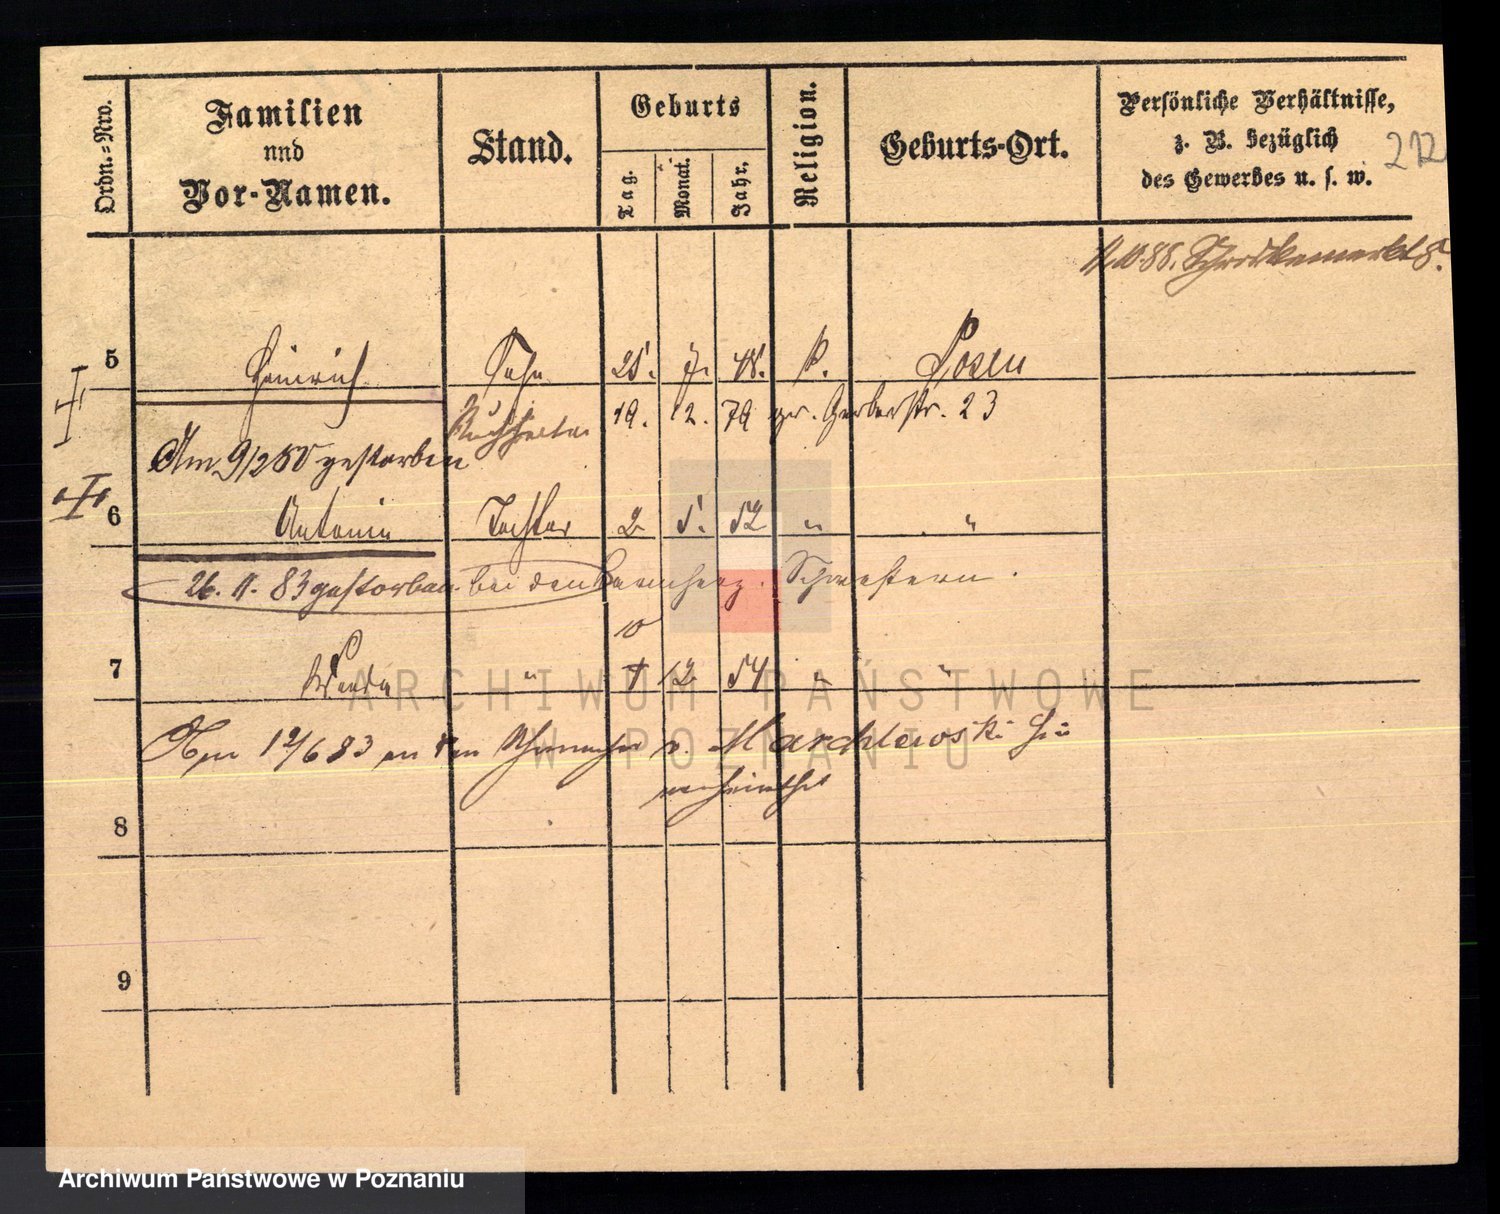 Ordn.=Nro.
Familien
nnd
Vor-Namen.
Stand.
Geburts
Tag.
Monat.
Jahr.
Religion.
Geburts-Ort.
Persönliche Verhältnisse,
z. B. bezüglich
des Gewerbes u. s. w.
212
11.10.88.
5 Heinrich Sohn 25. 7. 48. k. Posen
19. 12. 79 gr. Gerberstr. 23
Am 9/2 80 gestorben
6 Antonie Tochter 2 5. 52 " "
26. 11. 83 gestorben bei den Barmherz. Schwestern.
10
7 Wanda " 12 54 " "
Am 19/6 83 an den v. Marchlewski hie
verheirathet
8
9
ARCHIWUM PAŃSTWOWE
W POZNANIU
Archiwum Państwowe w Poznaniu